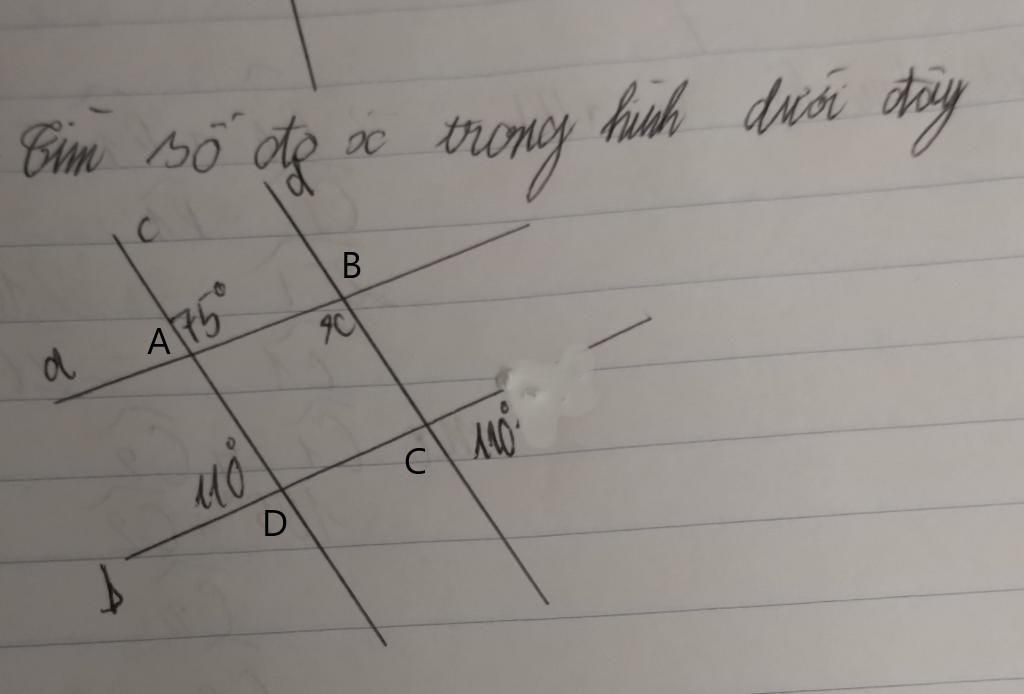 Tìm số đo x trong hình dưới đây
d
c
B
75°
A
x
a
110°
C
110°
D
b